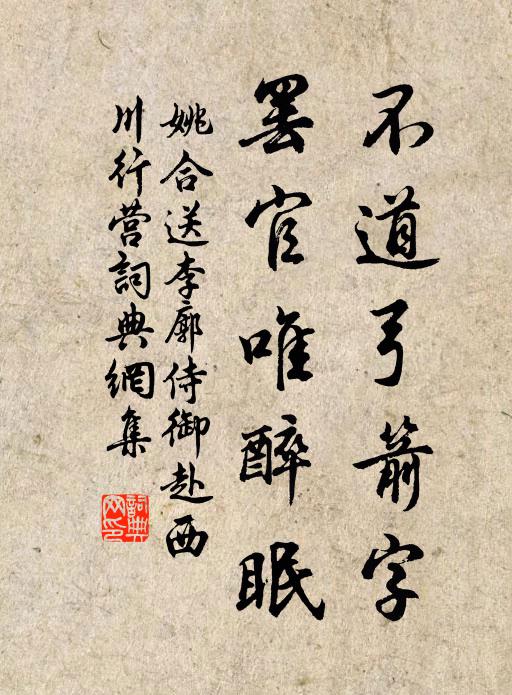 不道弓箭字
罢官唯醉眠
姚合送李廓侍御赴西
川行营词典網集
詞典
网印